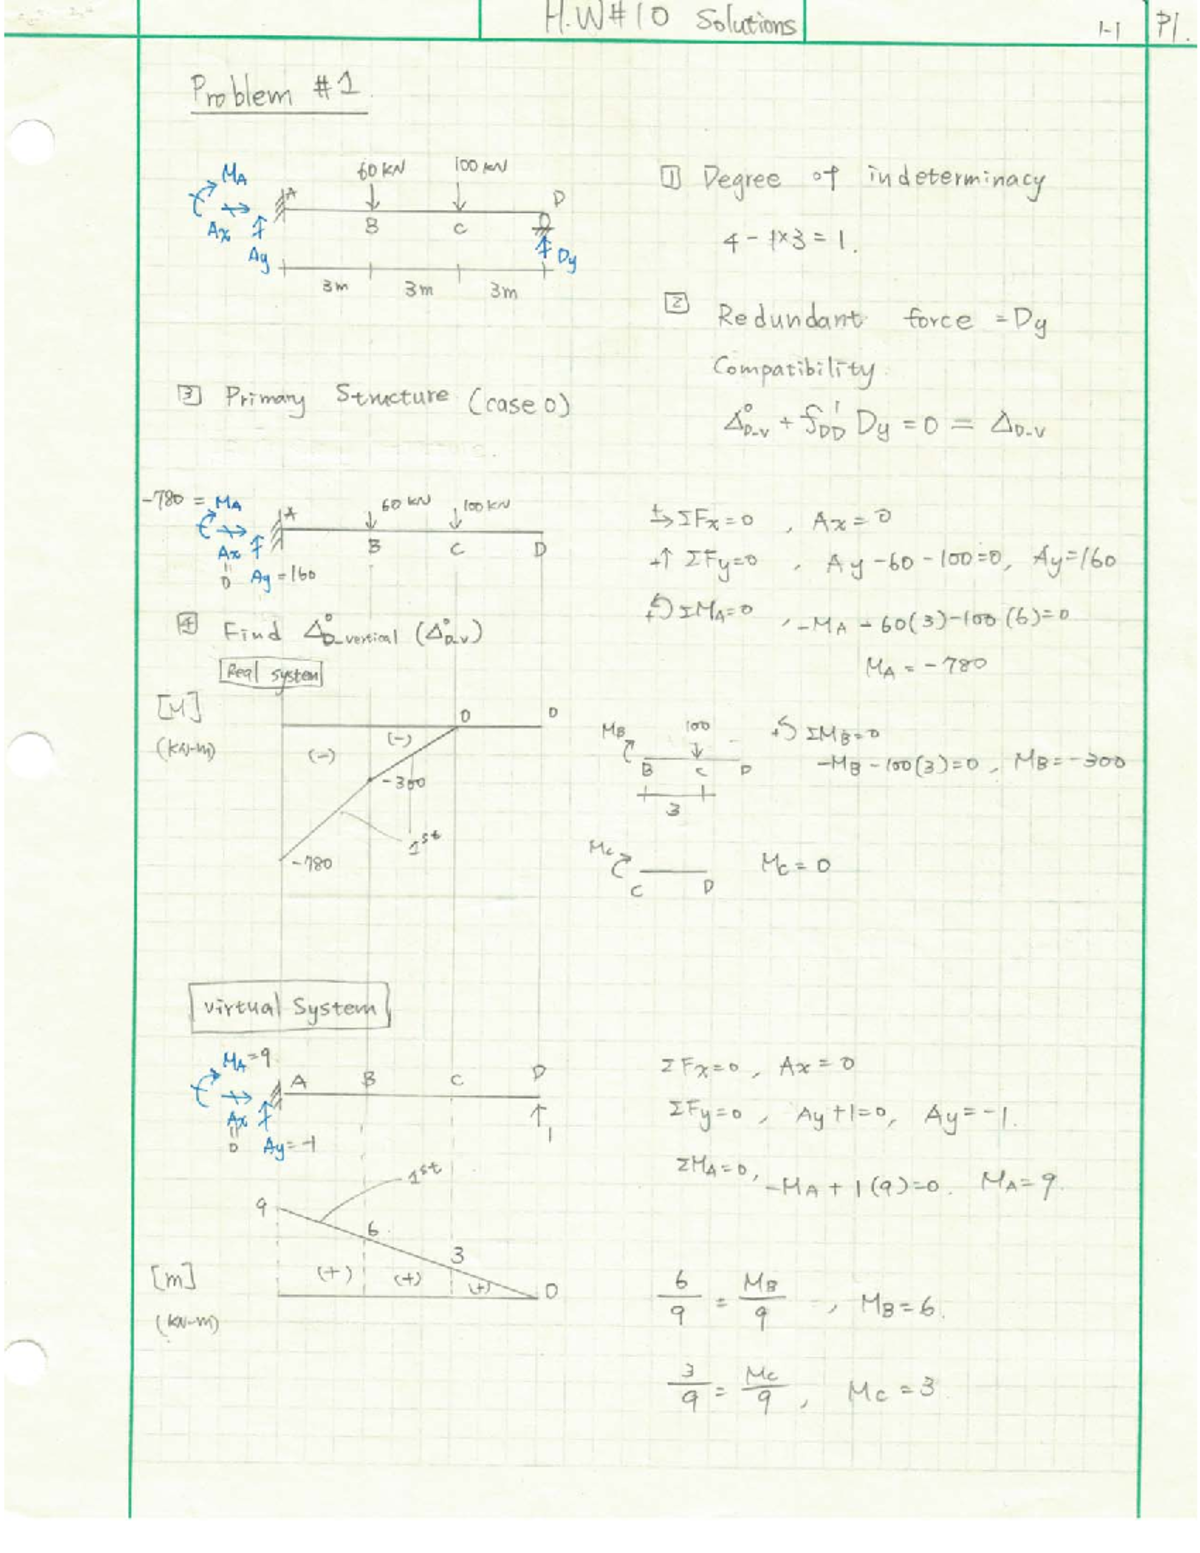 H.W#10 Solutions
1-1
P1.
Problem #1.
MA
60 KN
100 KN
A
D
Ax
B
C
Ay
Dy
3m
3m
3m
1 Degree of indeterminacy
4 - 1×3 = 1.
2 Redundant force = Dy
Compatibility
Δ⁰D-V + f¹DD Dy = 0 = ΔD-V
3 Primary Structure (case 0)
-780 = MA
60 KN
100 KN
A
Ax
B
C
D
0
Ay = 160
+→ ΣFx=0 , Ax = 0
+↑ ΣFy=0 , Ay -60 -100=0, Ay=160
+↺ ΣMA=0 , -MA - 60(3)-100(6)=0
MA = -780
4 Find Δ⁰D-vertical (Δ⁰D-V)
Real system
[M]
(KN-m)
0
0
(-)
(-)
-300
1st
-780
MB
100
B
C
D
3
+↺ ΣMB=0
-MB -100(3)=0, MB=-300
Mc
C
D
Mc = 0
virtual System
MA=9
A
B
C
D
Ax
0
Ay=-1
1
ΣFx=0, Ax = 0
ΣFy=0, Ay+1=0, Ay=-1.
ΣMA=0, -MA + 1(9)=0. MA=9.
1st
9
6
3
0
(+)
(+)
(+)
[m]
(KN-m)
6/9 = MB/9 , MB=6.
3/9 = Mc/9 , Mc = 3